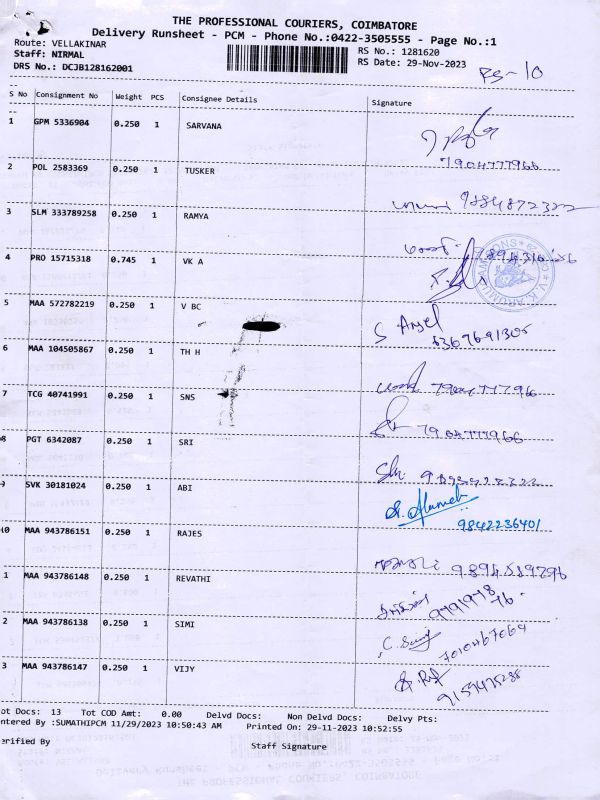 THE PROFESSIONAL COURIERS, COIMBATORE
Delivery Runsheet - PCM - Phone No.:0422-3505555 - Page No.:1
Route: VELLAKINAR
Staff: NIRMAL
DRS No.: DCJB128162001
RS No.: 1281620
RS Date: 29-Nov-2023
RS-10
S No Consignment No Weight PCS Consignee Details Signature
1 GPM 5336904 0.250 1 SARVANA
7904777966
2 POL 2583369 0.250 1 TUSKER
9884872322
3 SLM 333789258 0.250 1 RAMYA
4 PRO 15715318 0.745 1 VK A
5 MAA 572782219 0.250 1 V BC
S Angel
6 MAA 104505867 0.250 1 TH H
7904777966
7 TCG 40741991 0.250 1 SNS
7904777966
8 PGT 6342087 0.250 1 SRI
9 SVK 30181024 0.250 1 ABI
9842236401
10 MAA 943786151 0.250 1 RAJES
1 MAA 943786148 0.250 1 REVATHI
2 MAA 943786138 0.250 1 SIMI
7010467064
3 MAA 943786147 0.250 1 VIJY
ot Docs: 13 Tot COD Amt: 0.00 Delvd Docs: Non Delvd Docs: Delvy Pts:
ntered By :SUMATHIPCM 11/29/2023 10:50:43 AM Printed On: 29-11-2023 10:52:55
erified By Staff Signature